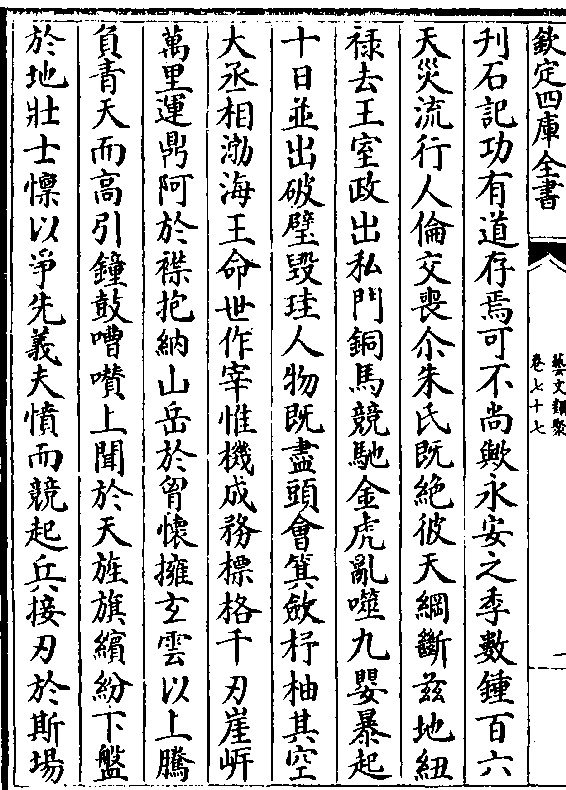 欽定四庫全書
藝文類聚
卷七十七
一
刋石記功有道存焉可不尚歟永安之季數鍾百六
天災流行人倫交喪尒朱氏既絶彼天綱斷茲地紐
禄去王室政出私門銅馬競馳金虎亂噬九嬰暴起
十日並出破璧毀珪人物既盡頭會箕斂杼柚其空
大丞相渤海王命世作宰惟機成務標格千刃崖岓
萬里運鼎阿於襟抱納山岳於胷懷擁玄雲以上騰
負青天而高引鐘鼓嘈囋上聞於天旌旗繽紛下盤
於地壯士懍以爭先義夫憤而競起兵接刃於斯場